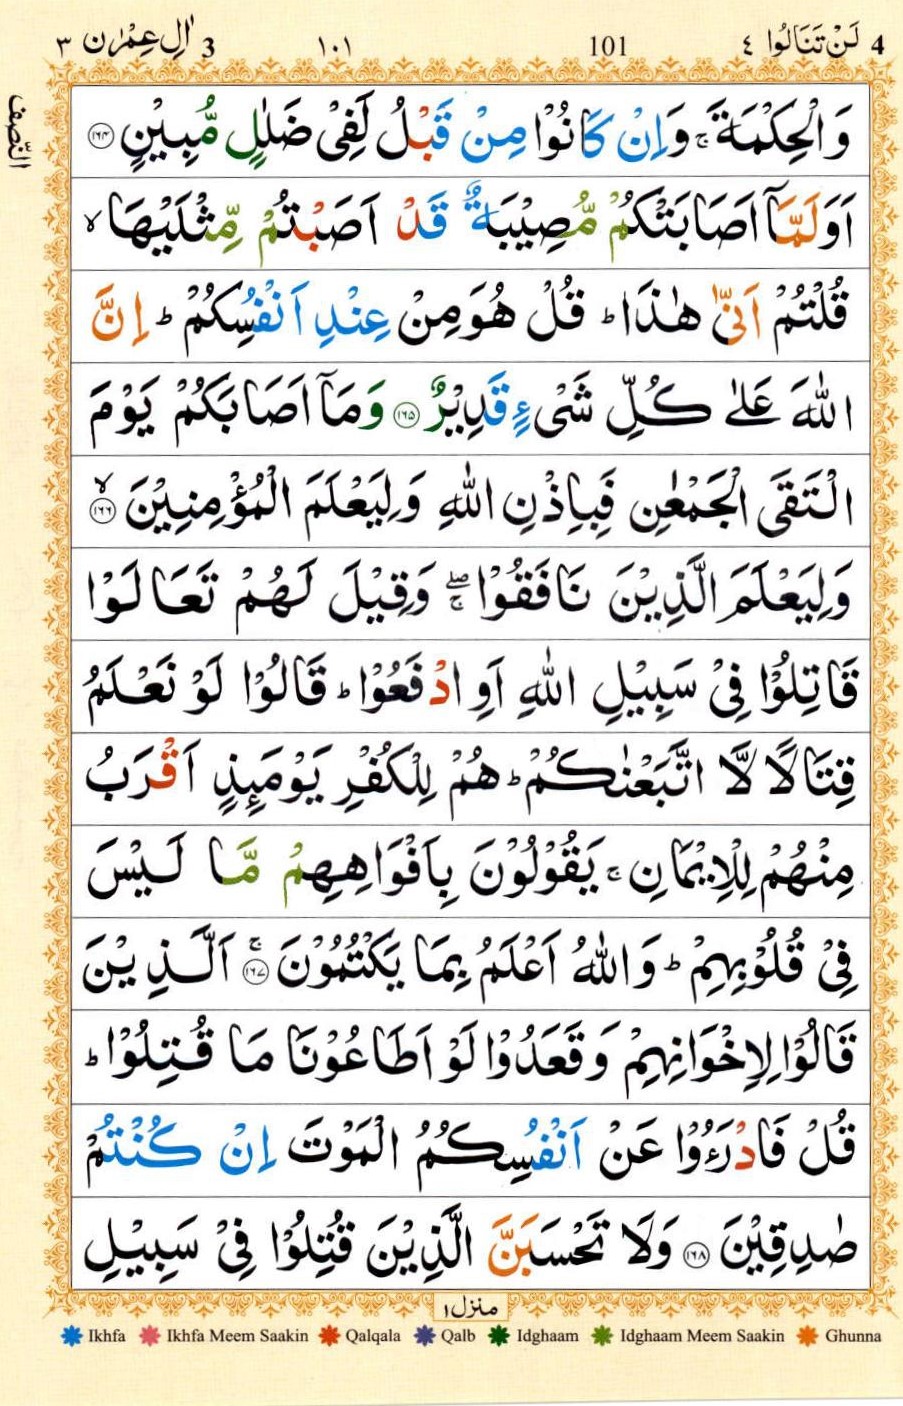 3 اٰلِ عِمْرٰن ٣ ١٠١ 101 4 لَنْ تَنَالُوا ٤
النّصف
وَالْحِكْمَةَ ۚ وَاِنْ كَانُوْا مِنْ قَبْلُ لَفِیْ ضَلٰلٍ مُّبِیْنٍ ﴿۱۶۴﴾
اَوَلَمَّاۤ اَصَابَتْكُمْ مُّصِیْبَةٌ قَدْ اَصَبْتُمْ مِّثْلَیْهَا ۙ
قُلْتُمْ اَنّٰی هٰذَا ؕ قُلْ هُوَ مِنْ عِنْدِ اَنْفُسِكُمْ ؕ اِنَّ
اللّٰهَ عَلٰی كُلِّ شَیْءٍ قَدِیْرٌ ﴿۱۶۵﴾ وَمَاۤ اَصَابَكُمْ یَوْمَ
الْتَقَی الْجَمْعٰنِ فَبِاِذْنِ اللّٰهِ وَلِیَعْلَمَ الْمُؤْمِنِیْنَ ۙ﴿۱۶۶﴾
وَلِیَعْلَمَ الَّذِیْنَ نَافَقُوْا ۖۚ وَقِیْلَ لَهُمْ تَعَالَوْا
قَاتِلُوْا فِیْ سَبِیْلِ اللّٰهِ اَوِ ادْفَعُوْا ؕ قَالُوْا لَوْ نَعْلَمُ
قِتَالًا لَّا اتَّبَعْنٰكُمْ ؕ هُمْ لِلْكُفْرِ یَوْمَىِٕذٍ اَقْرَبُ
مِنْهُمْ لِلْاِیْمَانِ ۚ یَقُوْلُوْنَ بِاَفْوَاهِهِمْ مَّا لَیْسَ
فِیْ قُلُوْبِهِمْ ؕ وَاللّٰهُ اَعْلَمُ بِمَا یَكْتُمُوْنَ ۚ﴿۱۶۷﴾ اَلَّذِیْنَ
قَالُوْا لِاِخْوَانِهِمْ وَقَعَدُوْا لَوْ اَطَاعُوْنَا مَا قُتِلُوْا ؕ
قُلْ فَادْرَءُوْا عَنْ اَنْفُسِكُمُ الْمَوْتَ اِنْ كُنْتُمْ
صٰدِقِیْنَ ﴿۱۶۸﴾ وَلَا تَحْسَبَنَّ الَّذِیْنَ قُتِلُوْا فِیْ سَبِیْلِ
منزل ۱
Ikhfa Ikhfa Meem Saakin Qalqala Qalb Idghaam Idghaam Meem Saakin Ghunna